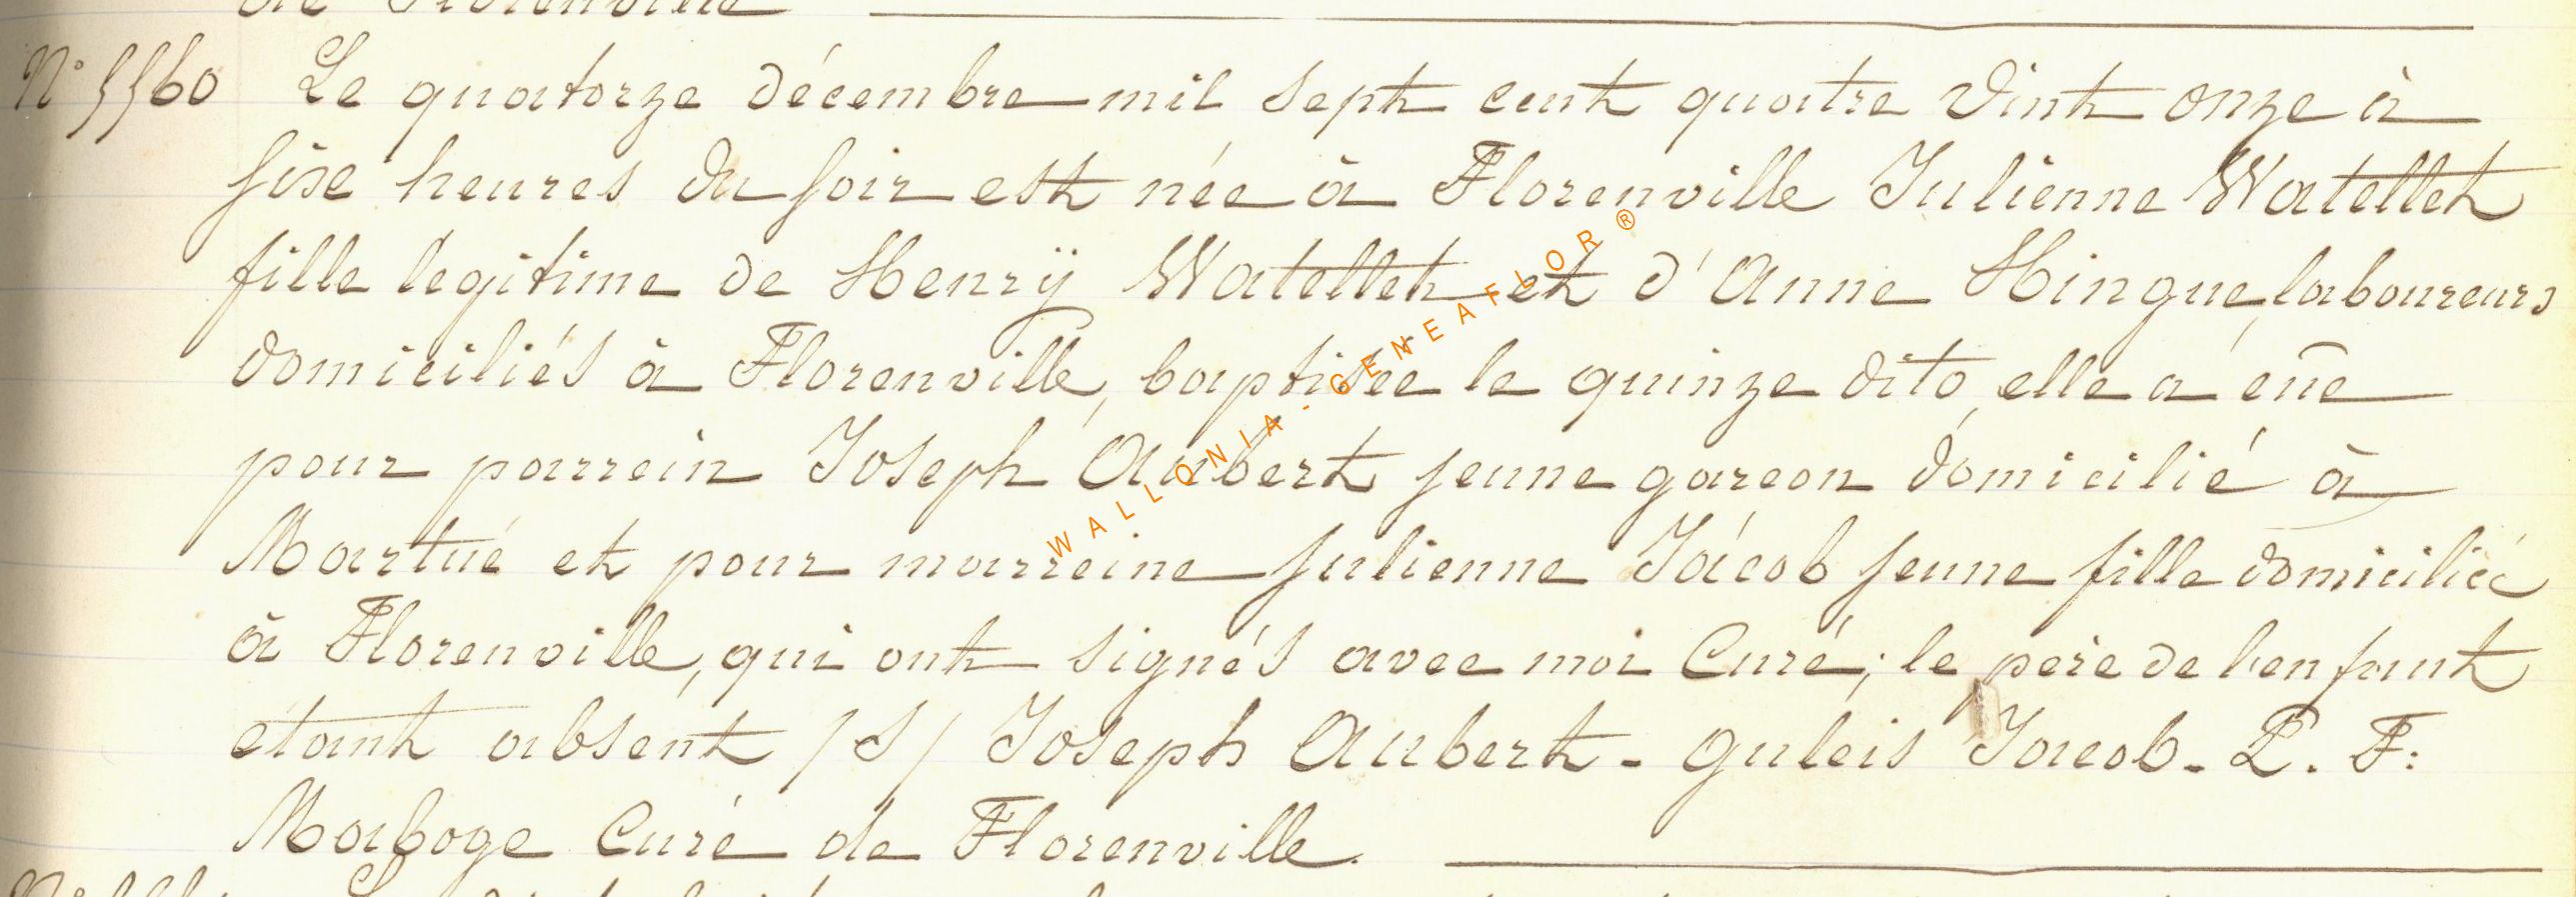 de Florenville
N° 5560 Le quatorze décembre mil sept cent quatre vint onze à
sise heures du soir est née à Florenville Julienne Watellet
fille legitime de Henrÿ Watellet et d'Anne Hingue, laboureurs
domiciliés à Florenville, baptisée le quinze dito, elle a eüe
pour parrein Joseph Aubert jeune garcon domicilié à
Martué et pour marreine Julienne Jácob jeune fille domiciliée
à Florenville, qui ont signés avec moi Curé; le pere de l'enfant
étant absent /S/ Joseph Aubert - guleis Jacob - P. F:
Maboge Curé de Florenville.
WALLONIA . GENEAFLOR ®